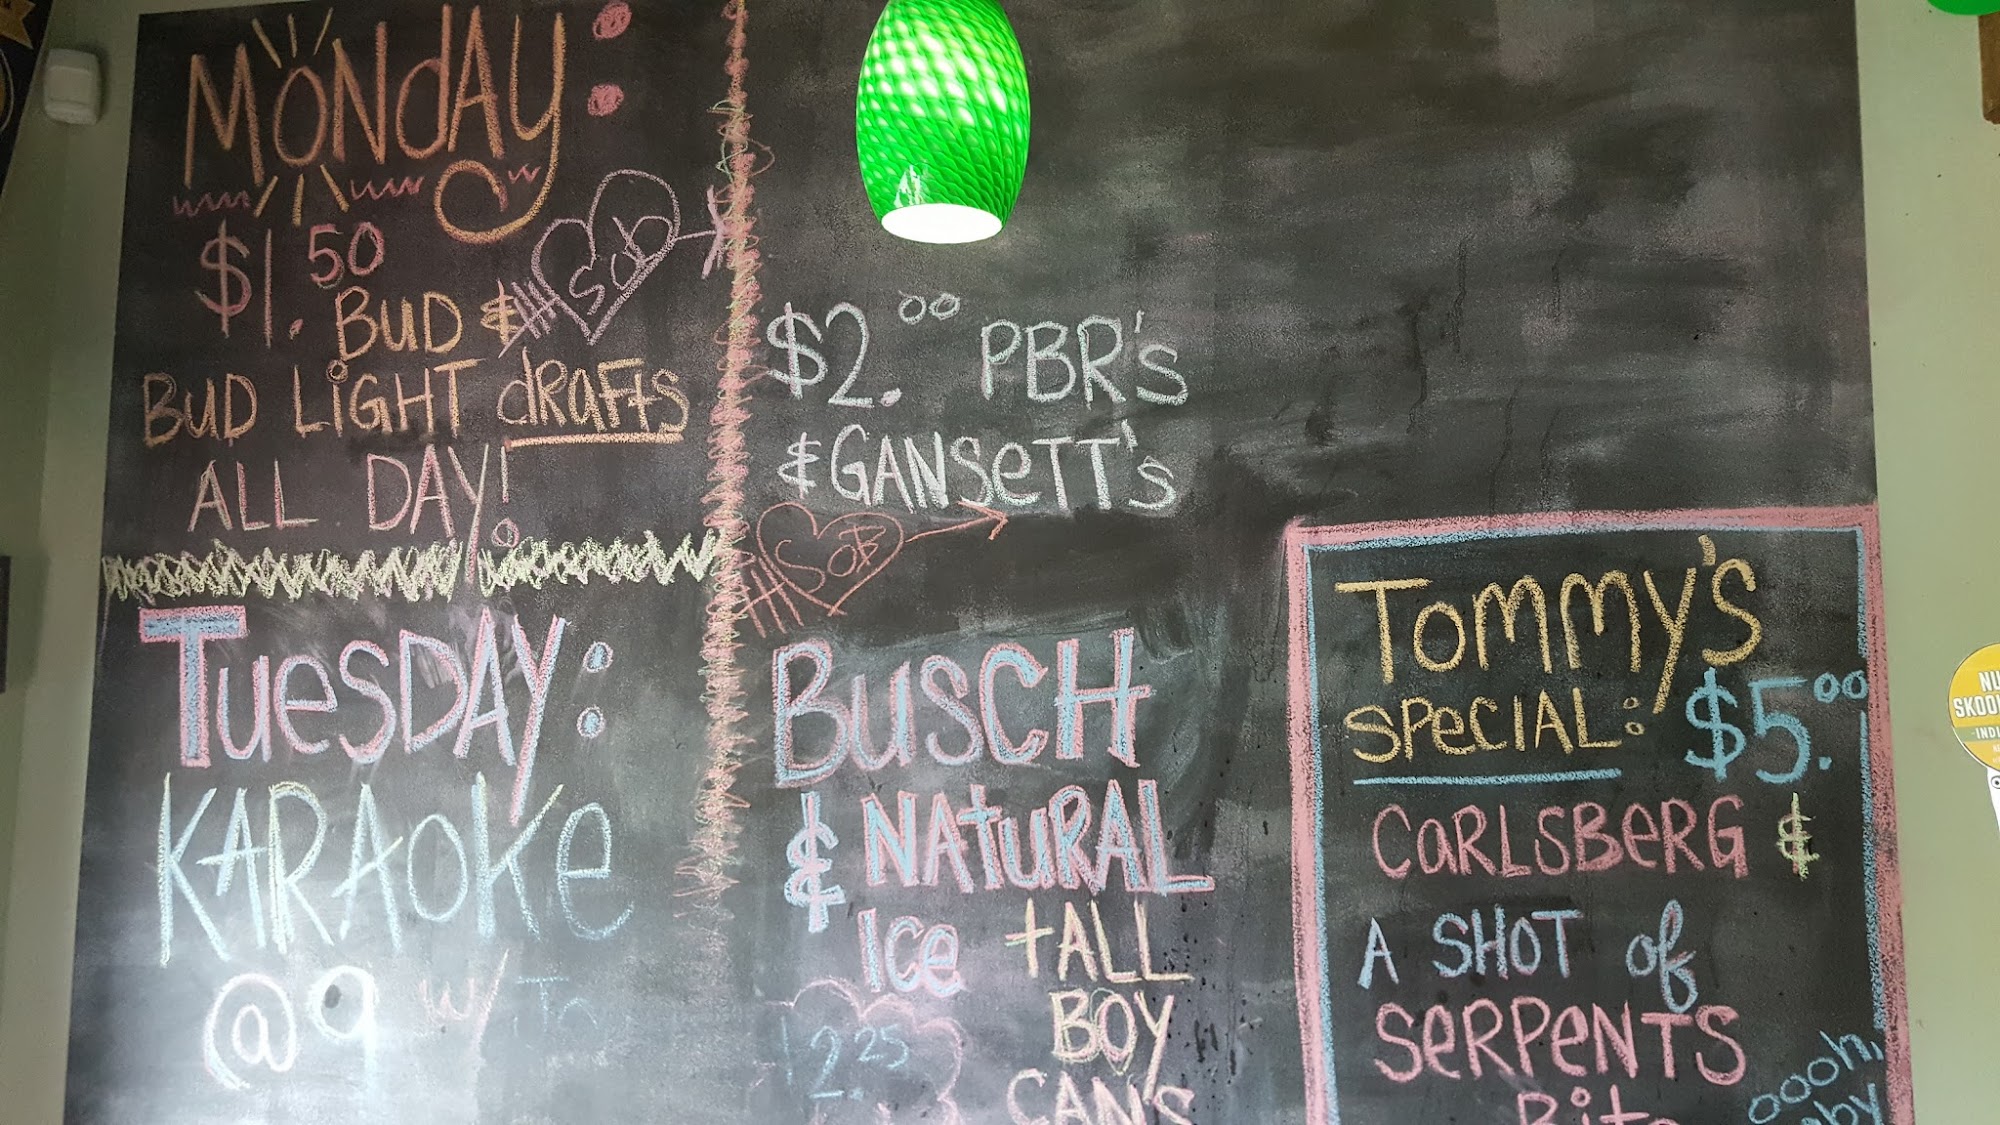 MONDAY:
$1.50
BUD &
SOB
BUD LIGHT DRAFTS
ALL DAY!
TUESDAY:
KARAOKE
@9 w/
$2.00 PBR's
& GANSETT's
SOB
BUSCH
& NATURAL
ICE
2.25
+ALL
BOY
CAN'S
TOMMY'S
SPECIAL: $5.00
CARLSBERG &
A SHOT of
SERPENTS
Bite
oooh,
NU
SKOO
INDI